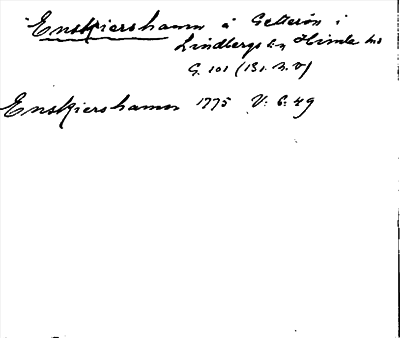 Enskiershamn å Getterön i
Lindbergs sn Himle hd
G. 101 (Bl. N. V)
Enskiershamn 1775 V: 6:49